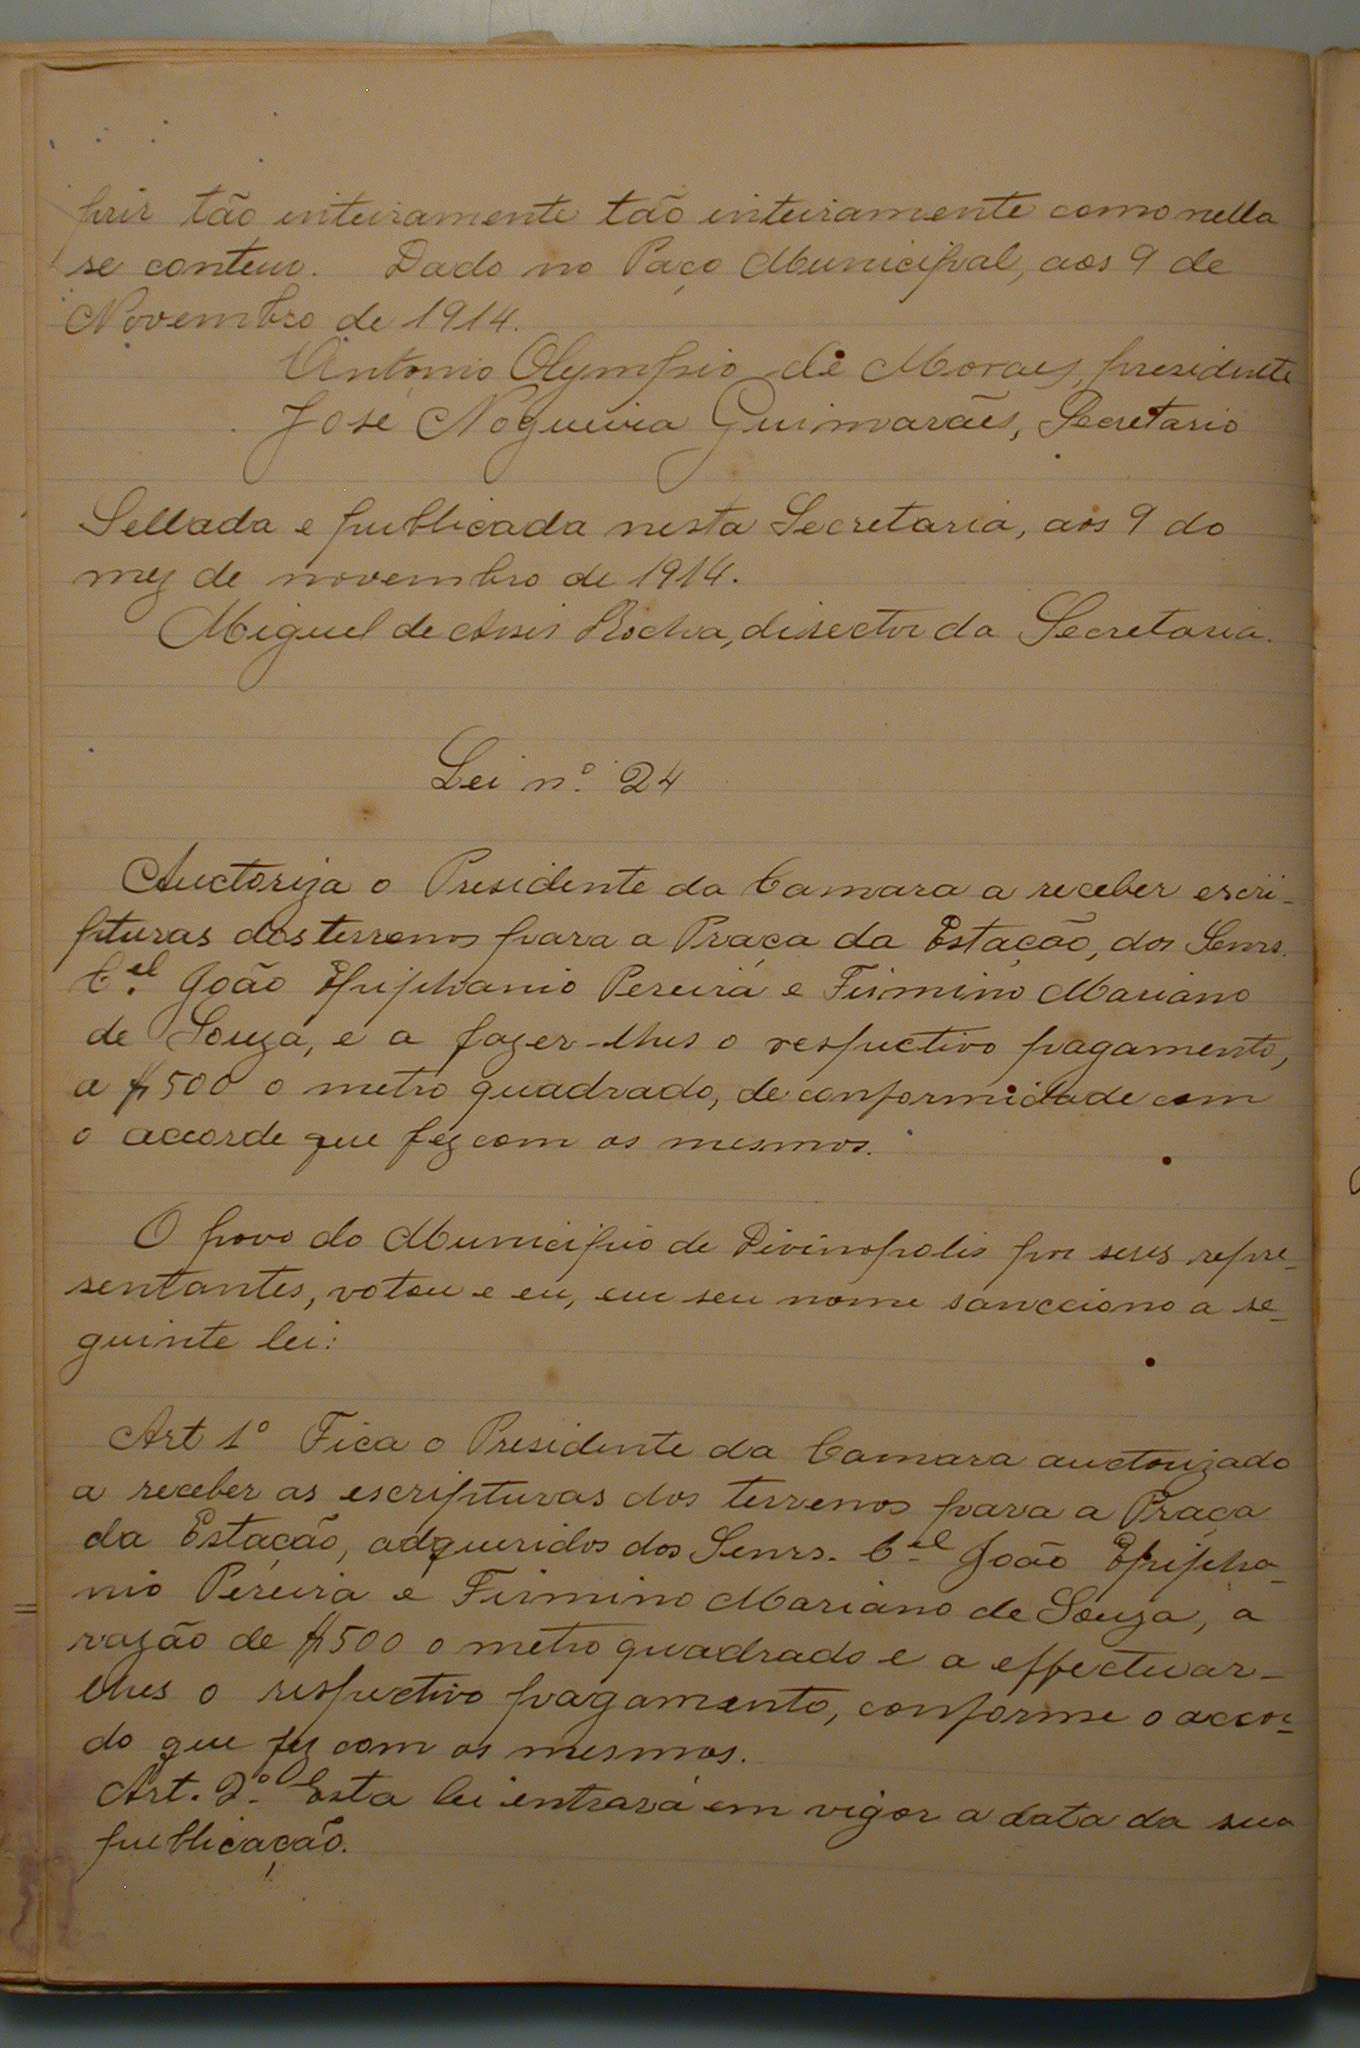 prir tão inteiramente tão inteiramente como nella
se contem. Dado no Paço Municipal, aos 9 de
Novembro de 1914.
Antonio Olympio de Moraes, presidente
José Nogueira Guimarães, Secretario
Sellada e publicada nesta Secretaria, aos 9 do
mez de novembro de 1914.
Miguel de Assis Rocha, director da Secretaria.
Lei nº 24
Auctoriza o Presidente da Camara a receber escri-
pturas dos terrenos para a Praça da Estação, dos Senrs.
Cel. João Epiphanio Pereira e Firmino Mariano
de Souza, e a fazer-lhes o respectivo pagamento,
a $500 o metro quadrado, de conformidade com
o accordo que fez com os mesmos.
O povo do Municipio de Divinopolis por seus repre-
sentantes, votou e eu, em seu nome sancciono a se-
guinte lei:
Art 1º Fica o Presidente da Camara auctorizado
a receber as escripturas dos terrenos para a Praça
da Estação, adqueridos dos Senrs. Cel João Epipha-
nio Pereira e Firmino Mariano de Souza, a
razão de $500 o metro quadrado e a effectuar-
lhes o respectivo pagamento, conforme o accor-
do que fez com os mesmos.
Art. 2º Esta lei entrará em vigor a data da sua
publicação.